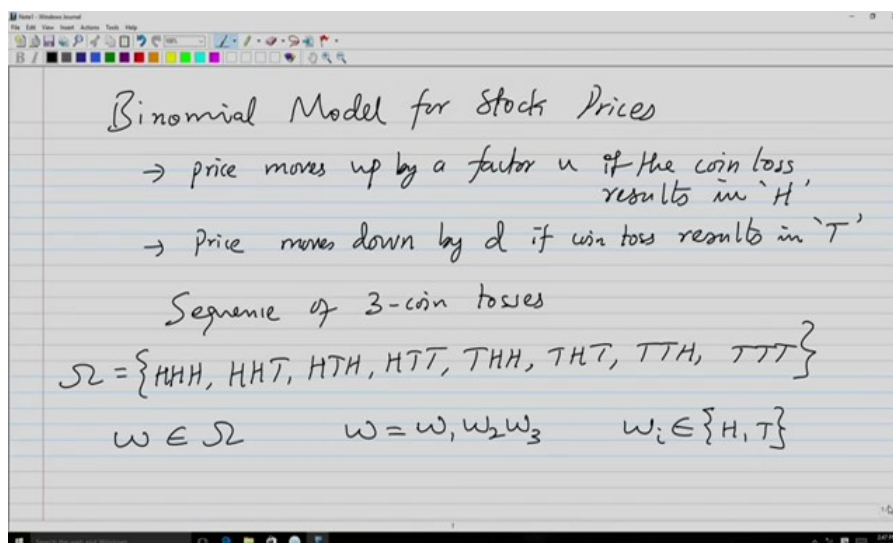 Note1 - Windows Journal
File Edit View Insert Actions Tools Help
B I
Binomial Model for Stock Prices
→ price moves up by a factor u if the coin toss
results in 'H'
→ Price moves down by d if coin toss results in 'T'
Sequence of 3-coin tosses
Ω = {HHH, HHT, HTH, HTT, THH, THT, TTH, TTT}
ω ∈ Ω ω = ω₁ω₂ω₃ ωᵢ ∈ {H, T}
Search the web and Windows